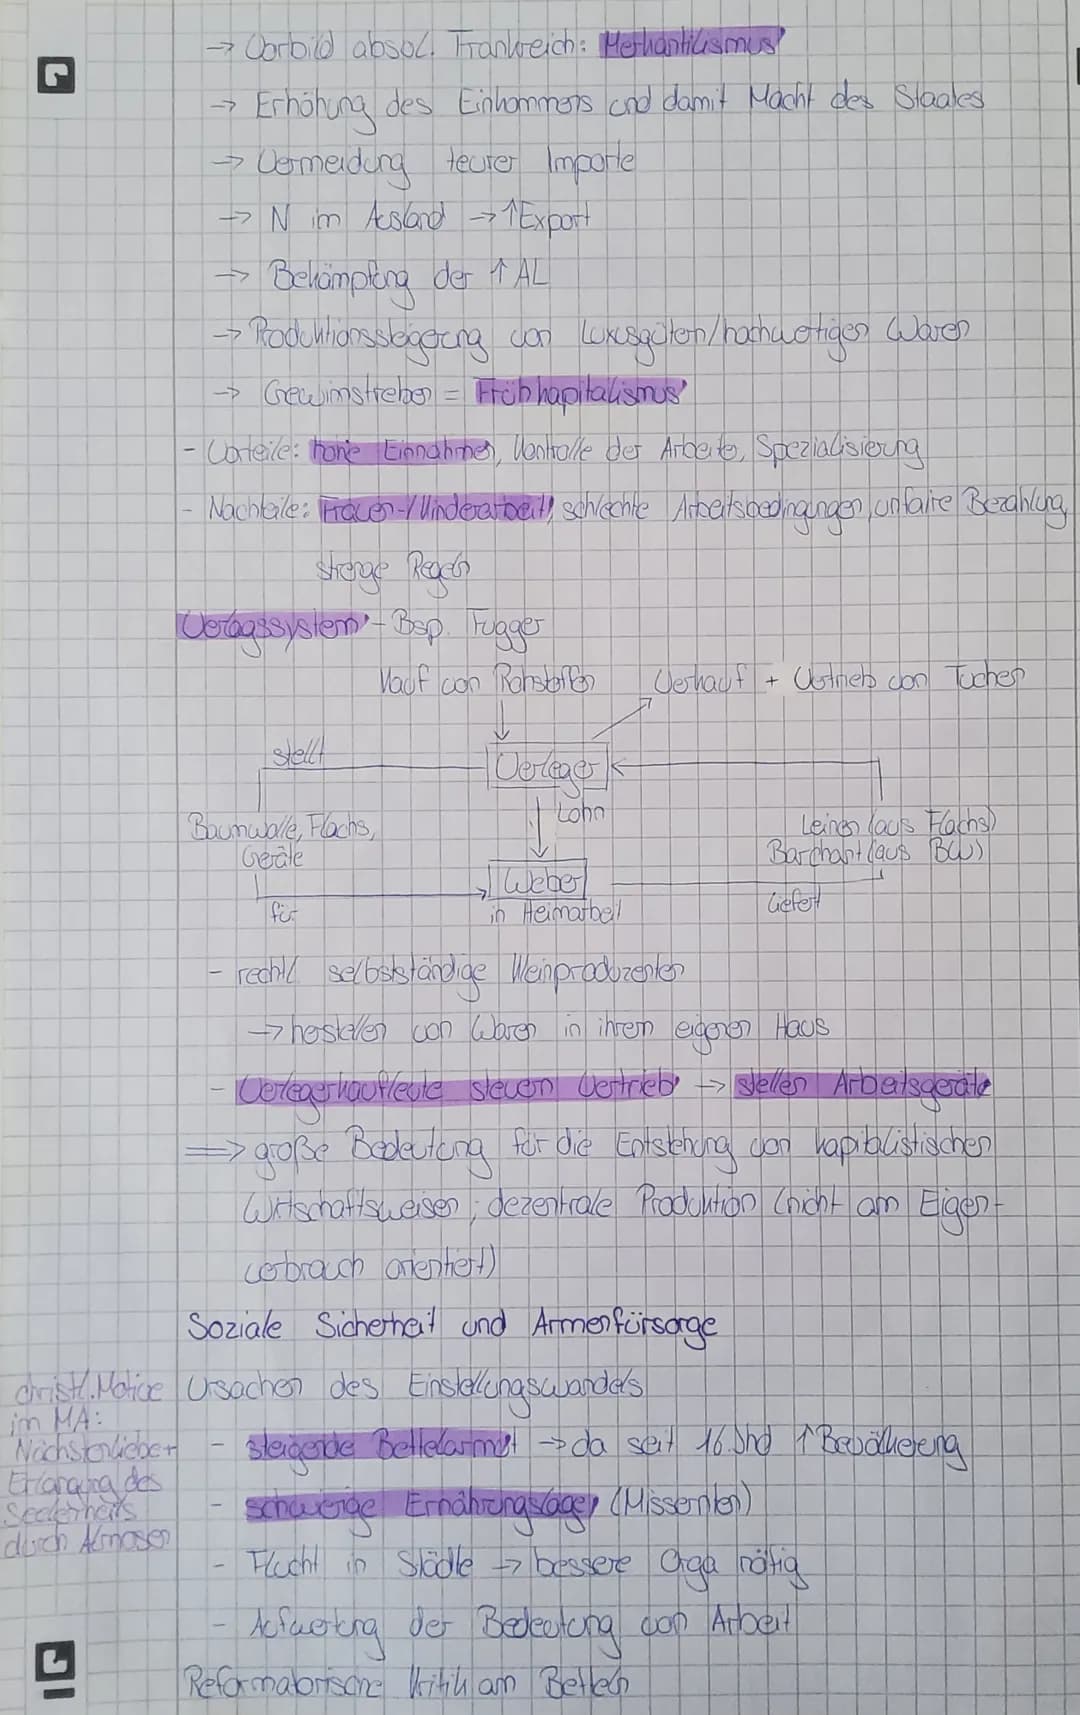 → Vorbild absol. Frankreich: Merkantilismus
→ Erhöhung des Einkommens und damit Macht des Staates
→ Vermeidung teurer Importe
→ N im Ausland → ↑Export
→ Bekämpfung der ↑ AL
→ Produktionssteigerung von Luxusgütern/hochwertigen Waren
→ Gewinnstreben = Frühkapitalismus
- Vorteile: hohe Einnahmen, Kontrolle der Arbeiter, Spezialisierung
- Nachteile: Frauen-/Kinderarbeit, schlechte Arbeitsbedingungen, unfaire Bezahlung
strenge Regeln
Verlagssystem - Bsp. Fugger
Kauf von Rohstoffen
Verkauf + Vertrieb von Tuchen
stellt
Verleger
Lohn
Baumwolle, Flachs,
Geräte
Leinen (aus Flachs)
Barchant (aus BW)
Weber
für
in Heimarbeit
liefert
- rechtl. selbstständige Kleinproduzenten
→ herstellen von Waren in ihrem eigenen Haus
- Verlegerkaufleute steuern Vertrieb → stellen Arbeitsgeräte
⟹ große Bedeutung für die Entstehung von kapitalistischen
Wirtschaftsweisen; dezentrale Produktion (nicht am Eigen-
verbrauch orientiert)
Soziale Sicherheit und Armenfürsorge
christl. Motive
im MA:
Nächstenliebe +
Erlangung des
Seelenheils
durch Almosen
Ursachen des Einstellungswandels
- steigende Bettelarmut → da seit 16. Jhd ↑ Bevölkerung
- schwierige Ernährungslage (Missernten)
- Flucht in Städte → bessere Orga nötig
- Aufwertung der Bedeutung von Arbeit
Reformatorische Kritik am Betteln